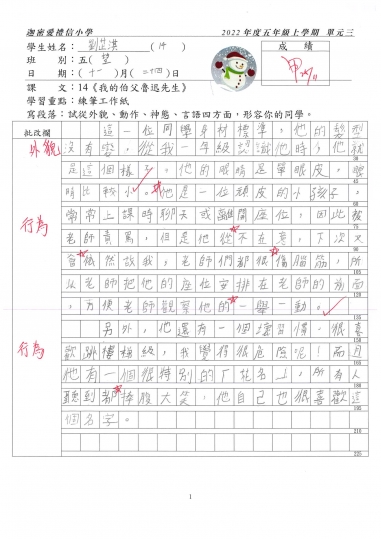 迦密愛禮信小學 2022年度五年級上學期 單元三
學生姓名：劉芷淇（14） 成績
班 別：五（望） 甲
日 期：（十一）月（二十四）日
課 文：14《我的伯父魯迅先生》
學習重點：練筆工作紙
寫段落：試從外貌、動作、神態、言語四方面，形容你的同學。
批改欄
外貌 這一位同學身材標準，他的髮型
沒有變，從我一年級認識他時，他就
是這個樣子。他的眼睛是單眼皮，眼
睛比較小。他是一位頑皮的小孩子，
行為 常常上課時聊天或離開座位，因此被
老師責罵，但是他從不在意，下次又
會依然故我，老師們都很傷腦筋，所
以老師把他的座位安排在老師的前面
，方便老師觀察他的一舉一動。
行為 另外，他還有一個壞習慣，很喜
歡跳樓梯級，我覺得很危險呢！而且
他有一個很特別的「花名」，所有人
聽到都捧腹大笑，他自己也很喜歡這
個名字。
1